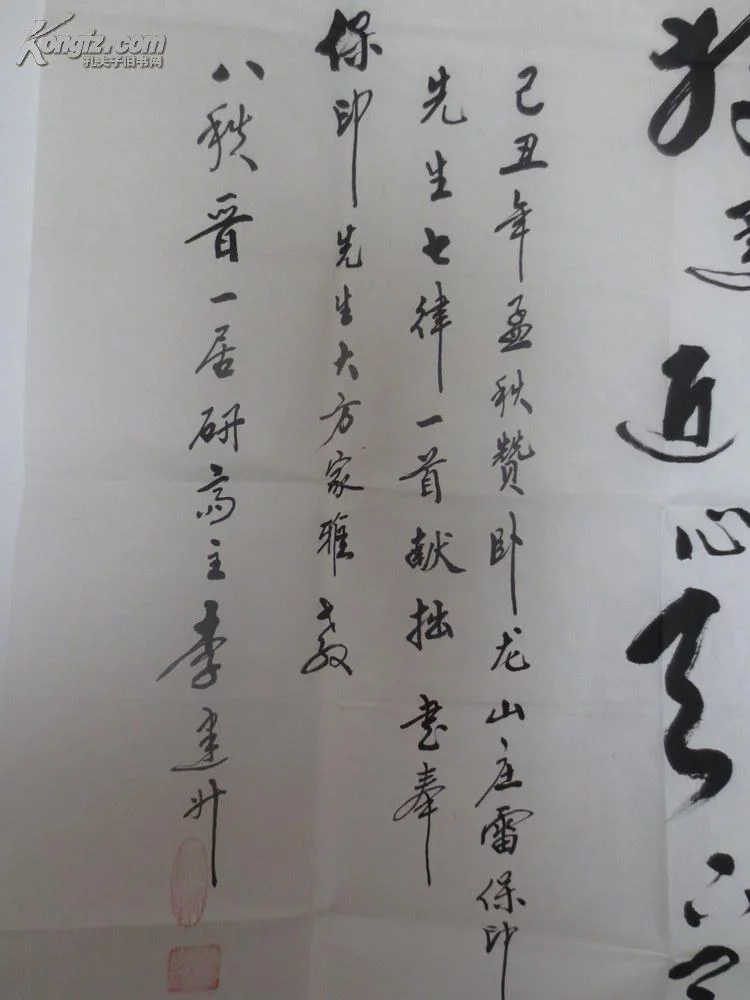 己丑年孟秋赞卧龙山庄雷保印
先生七律一首献拙 书奉
保印先生大方家雅教
八秩晋一居研斋主李建升
近心天
Kongfz.com
孔夫子旧书网